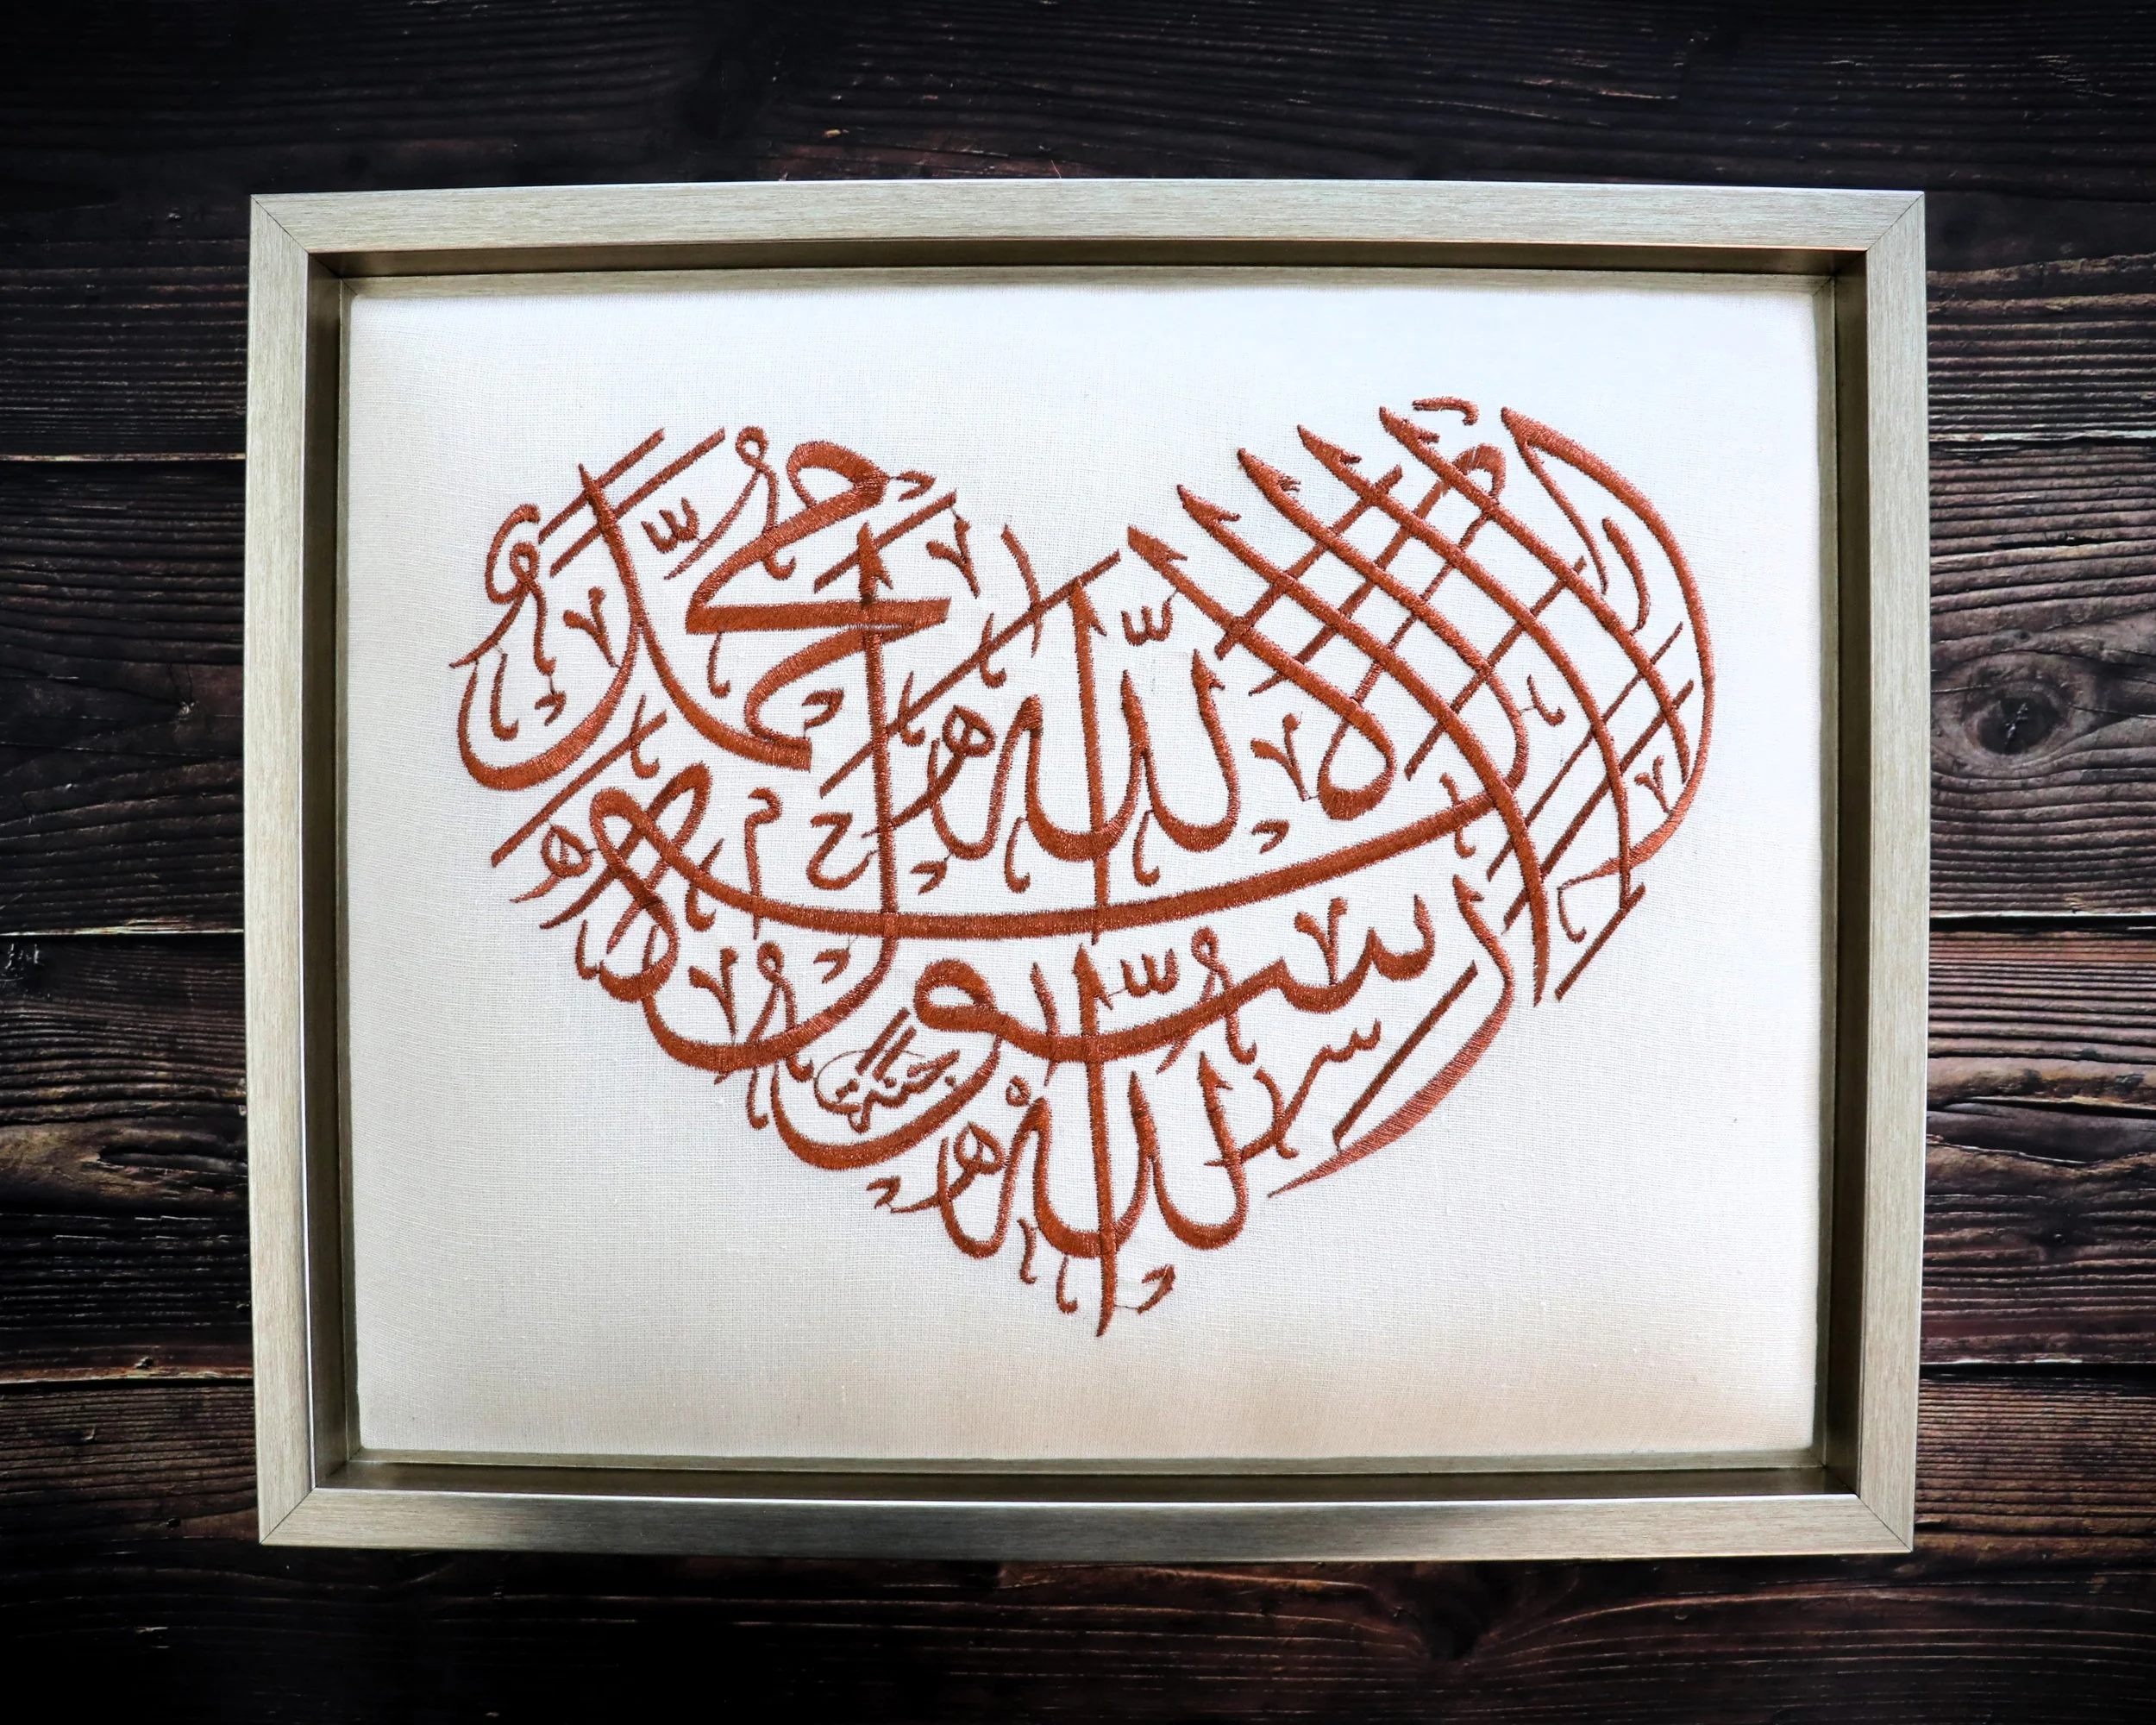 لَا إِلٰهَ إِلَّا اللّٰهُ
مُحَمَّدٌ
رَسُولُ اللّٰهِ